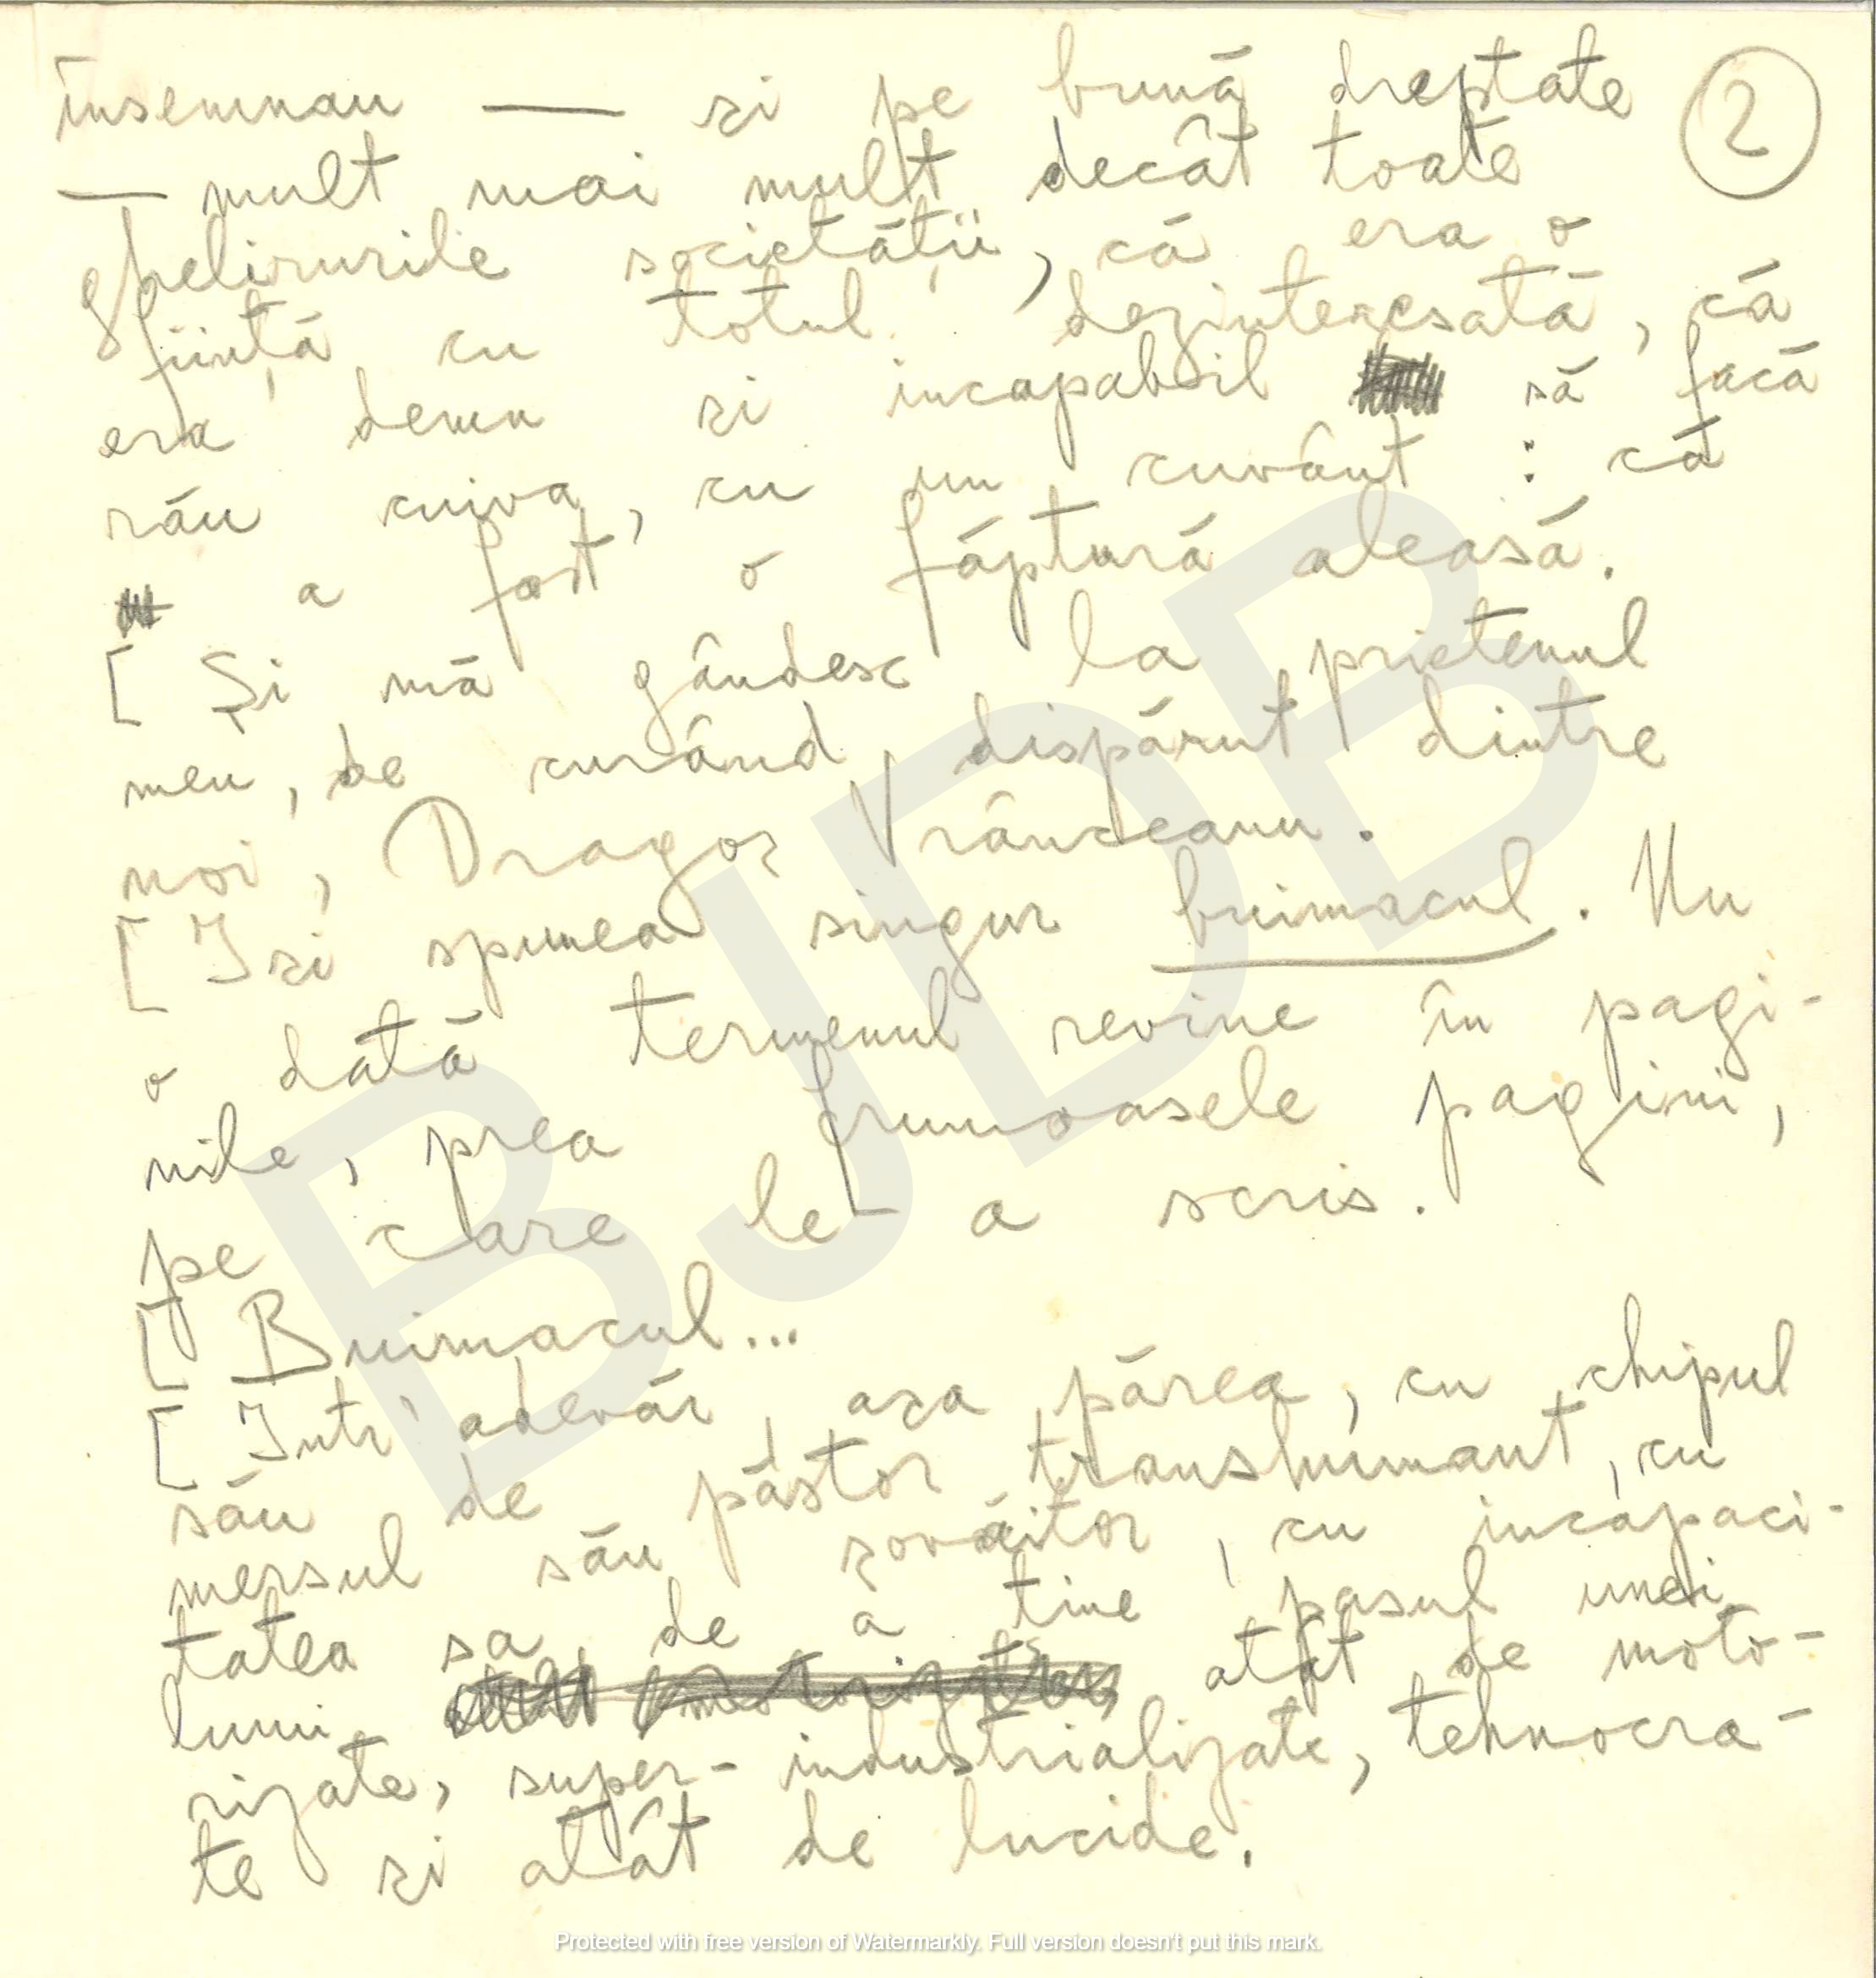 însemnau — și pe bună dreptate
2
— mult mai mult decât toate
ghelirurile societății, că era o
ființă cu totul dezinteresată, că
era demn și incapabil să facă
rău cuiva, cu un cuvânt : că
a fost o făptură aleasă.
[ Și mă gândesc la prietenul
meu, de curând dispărut dintre
noi, Dragoș Vrânceanu.
[ Iși spunea singur buimacul. Nu
o dată termenul revine în pagi-
nile, prea frumoasele pagini,
pe care le-a scris.
[ Buimacul...
[ Intr'adevăr, așa părea, cu chipul
său de păstor transhumant, cu
mersul său șovăitor, cu incapaci-
tatea sa de a ține pasul unei
lumi atât de moto-
rizate, super-industrializate, tehnocra-
te și atât de lucide.
BJDB
Protected with free version of Watermarkly. Full version doesn't put this mark.